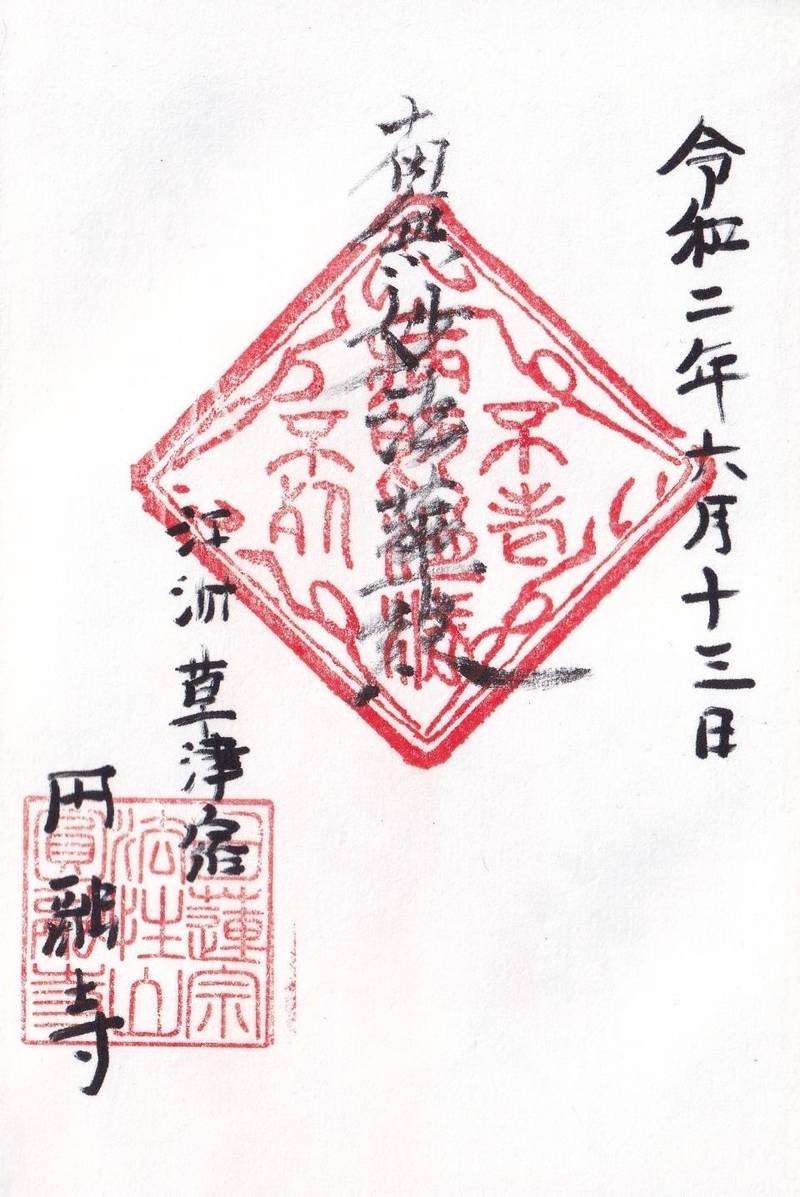 令和二年六月十三日
南無妙法蓮華経
江州草津宿
円融寺
不老
病即消滅
不死
日蓮宗
法性山
圓融寺